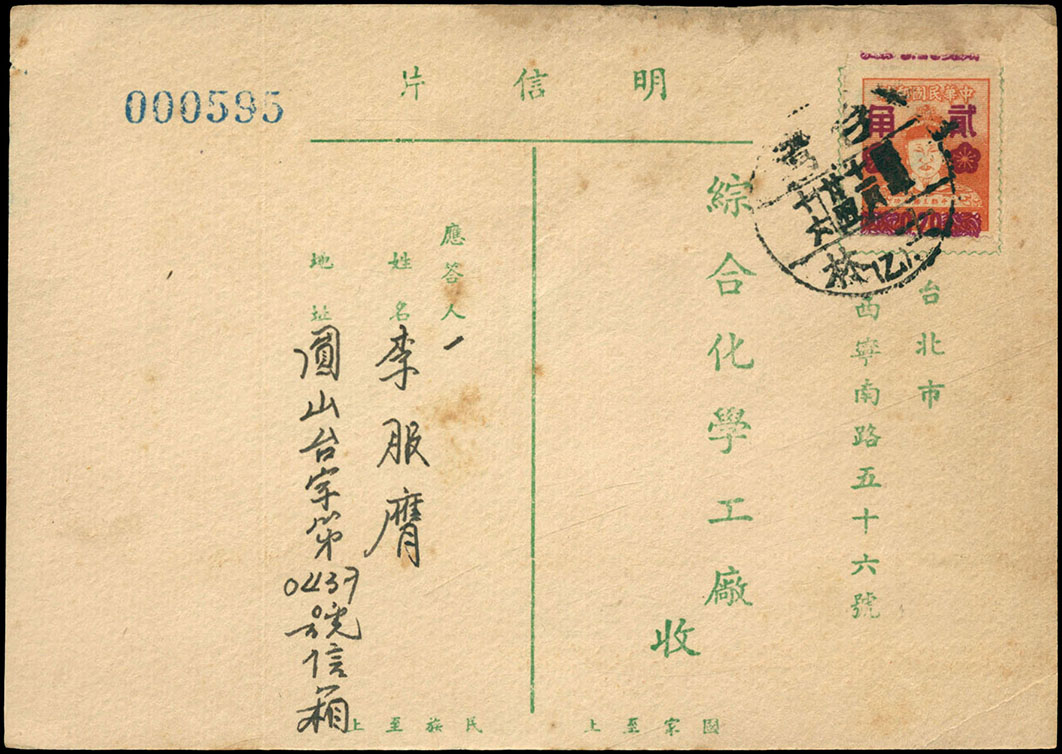 明信片
000595
中華民國郵政
貳角
台北市
西寧南路五十六號
綜合化學工廠
收
應答人
姓名 李服膺
地址 圓山台字第0437號信箱
國家至上
民族至上